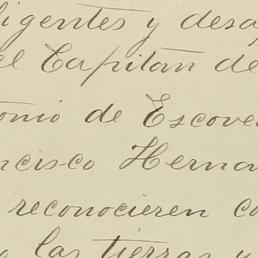 ligentes y desa
el Capitan de
tonio de Escove
ncisco Herna
reconocieren co
las tierras y